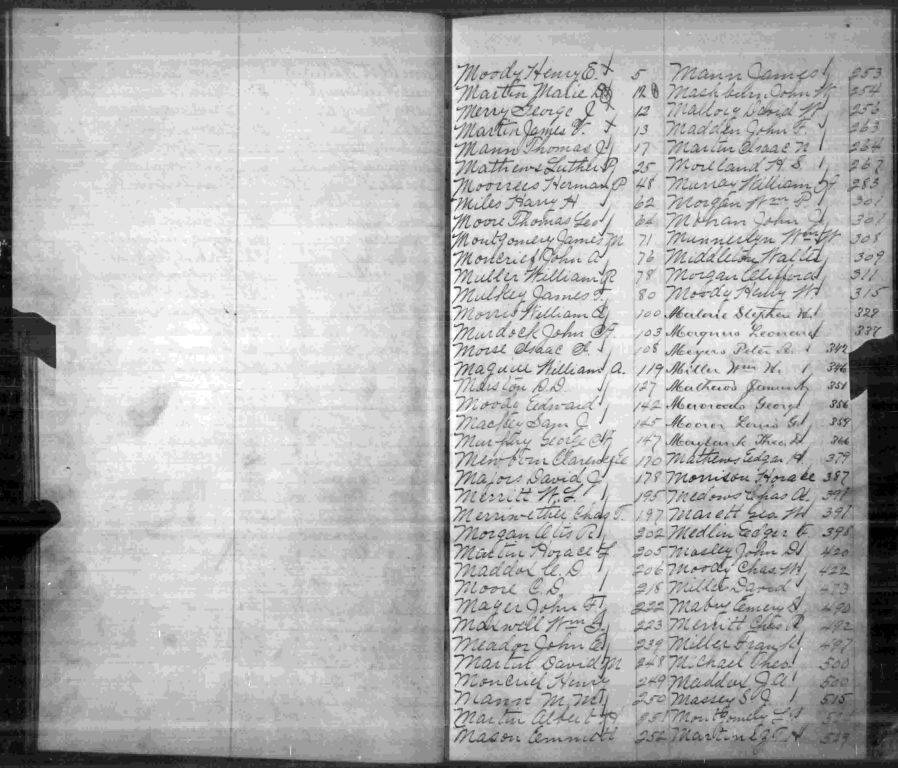 Moody Henry E. 5
Martin Marie 12
Merry George J 12
Martin James V. 13
Mann Thomas J 17
Mathews Luther P 25
Moorrees Herman P. 48
Miles Harry H 62
Moore Thomas Leo 64
Montgomery James M 71
Moncrief John A 76
Muller William R 78
Mulkey James 80
Morris William 100
Murdock John 103
Morse Isaac 108
Maguire William A. 119
Marston D.D 127
Moody Edward 142
Mackey Sam J 145
Murphry George 147
Mewborn Clarence 170
Majors David J 178
Merritt W. L. 195
Merriwether Chas T. 197
Morgan Otis R 202
Martin Horace 205
Maddox C. D 206
Moore C. D 218
Mayer John F 222
Maxwell Wm 223
Meador John 239
Martin David M 248
Moncrief Henry 249
Mann M. M 250
Martin Albert 251
Mason Emmett 252
Mann James 253
Mashburn John W 254
Mallory David W 256
Madden John F. 263
Martin Isaac N 264
Moreland H. S 267
Murray William 283
Morgan Wm P. 301
Moran John J 301
Munnerlyn Wm W 308
Middleton Walter 309
Morgan Clifford 311
Moody Henry W 315
Malone Stephen W. 329
Magnus Leonard 337
Meyers Peter 342
Miller Wm W. 346
Mathews James 351
George 356
Moorer Louis G 359
Maybank Theo 366
Mathews Edgar H. 379
Morrison Horace 387
Medows Chas A. 391
Marett Geo. W 391
Medlin Edger 398
Mosley John D 420
Moody Chas. W 422
Miller David 473
Mabry Emery 490
Merritt Chas. R 492
Miller Frank 497
Michael Theo 500
Maddox J. A 500
Massey S. J 515
Montgomery
Martin 549